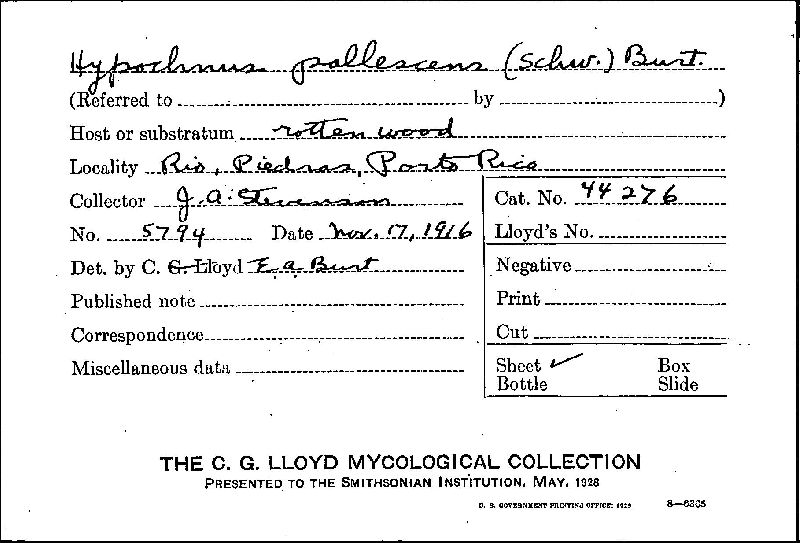 Hypochnus pallescens (Schw.) Burt.
(Referred to by )
Host or substratum rotten wood
Locality Rio, Piedras, Porto Rico
Collector J. A. Stevenson
Cat. No. 44276
No. 5794 Date Nov. 17, 1916
Lloyd's No.
Det. by C. G. Lloyd E. A. Burt
Negative
Published note
Print
Correspondence
Cut
Miscellaneous data
Sheet ✓ Box
Bottle Slide
THE C. G. LLOYD MYCOLOGICAL COLLECTION
PRESENTED TO THE SMITHSONIAN INSTITUTION, MAY, 1928
U. S. GOVERNMENT PRINTING OFFICE: 1929 8—6305